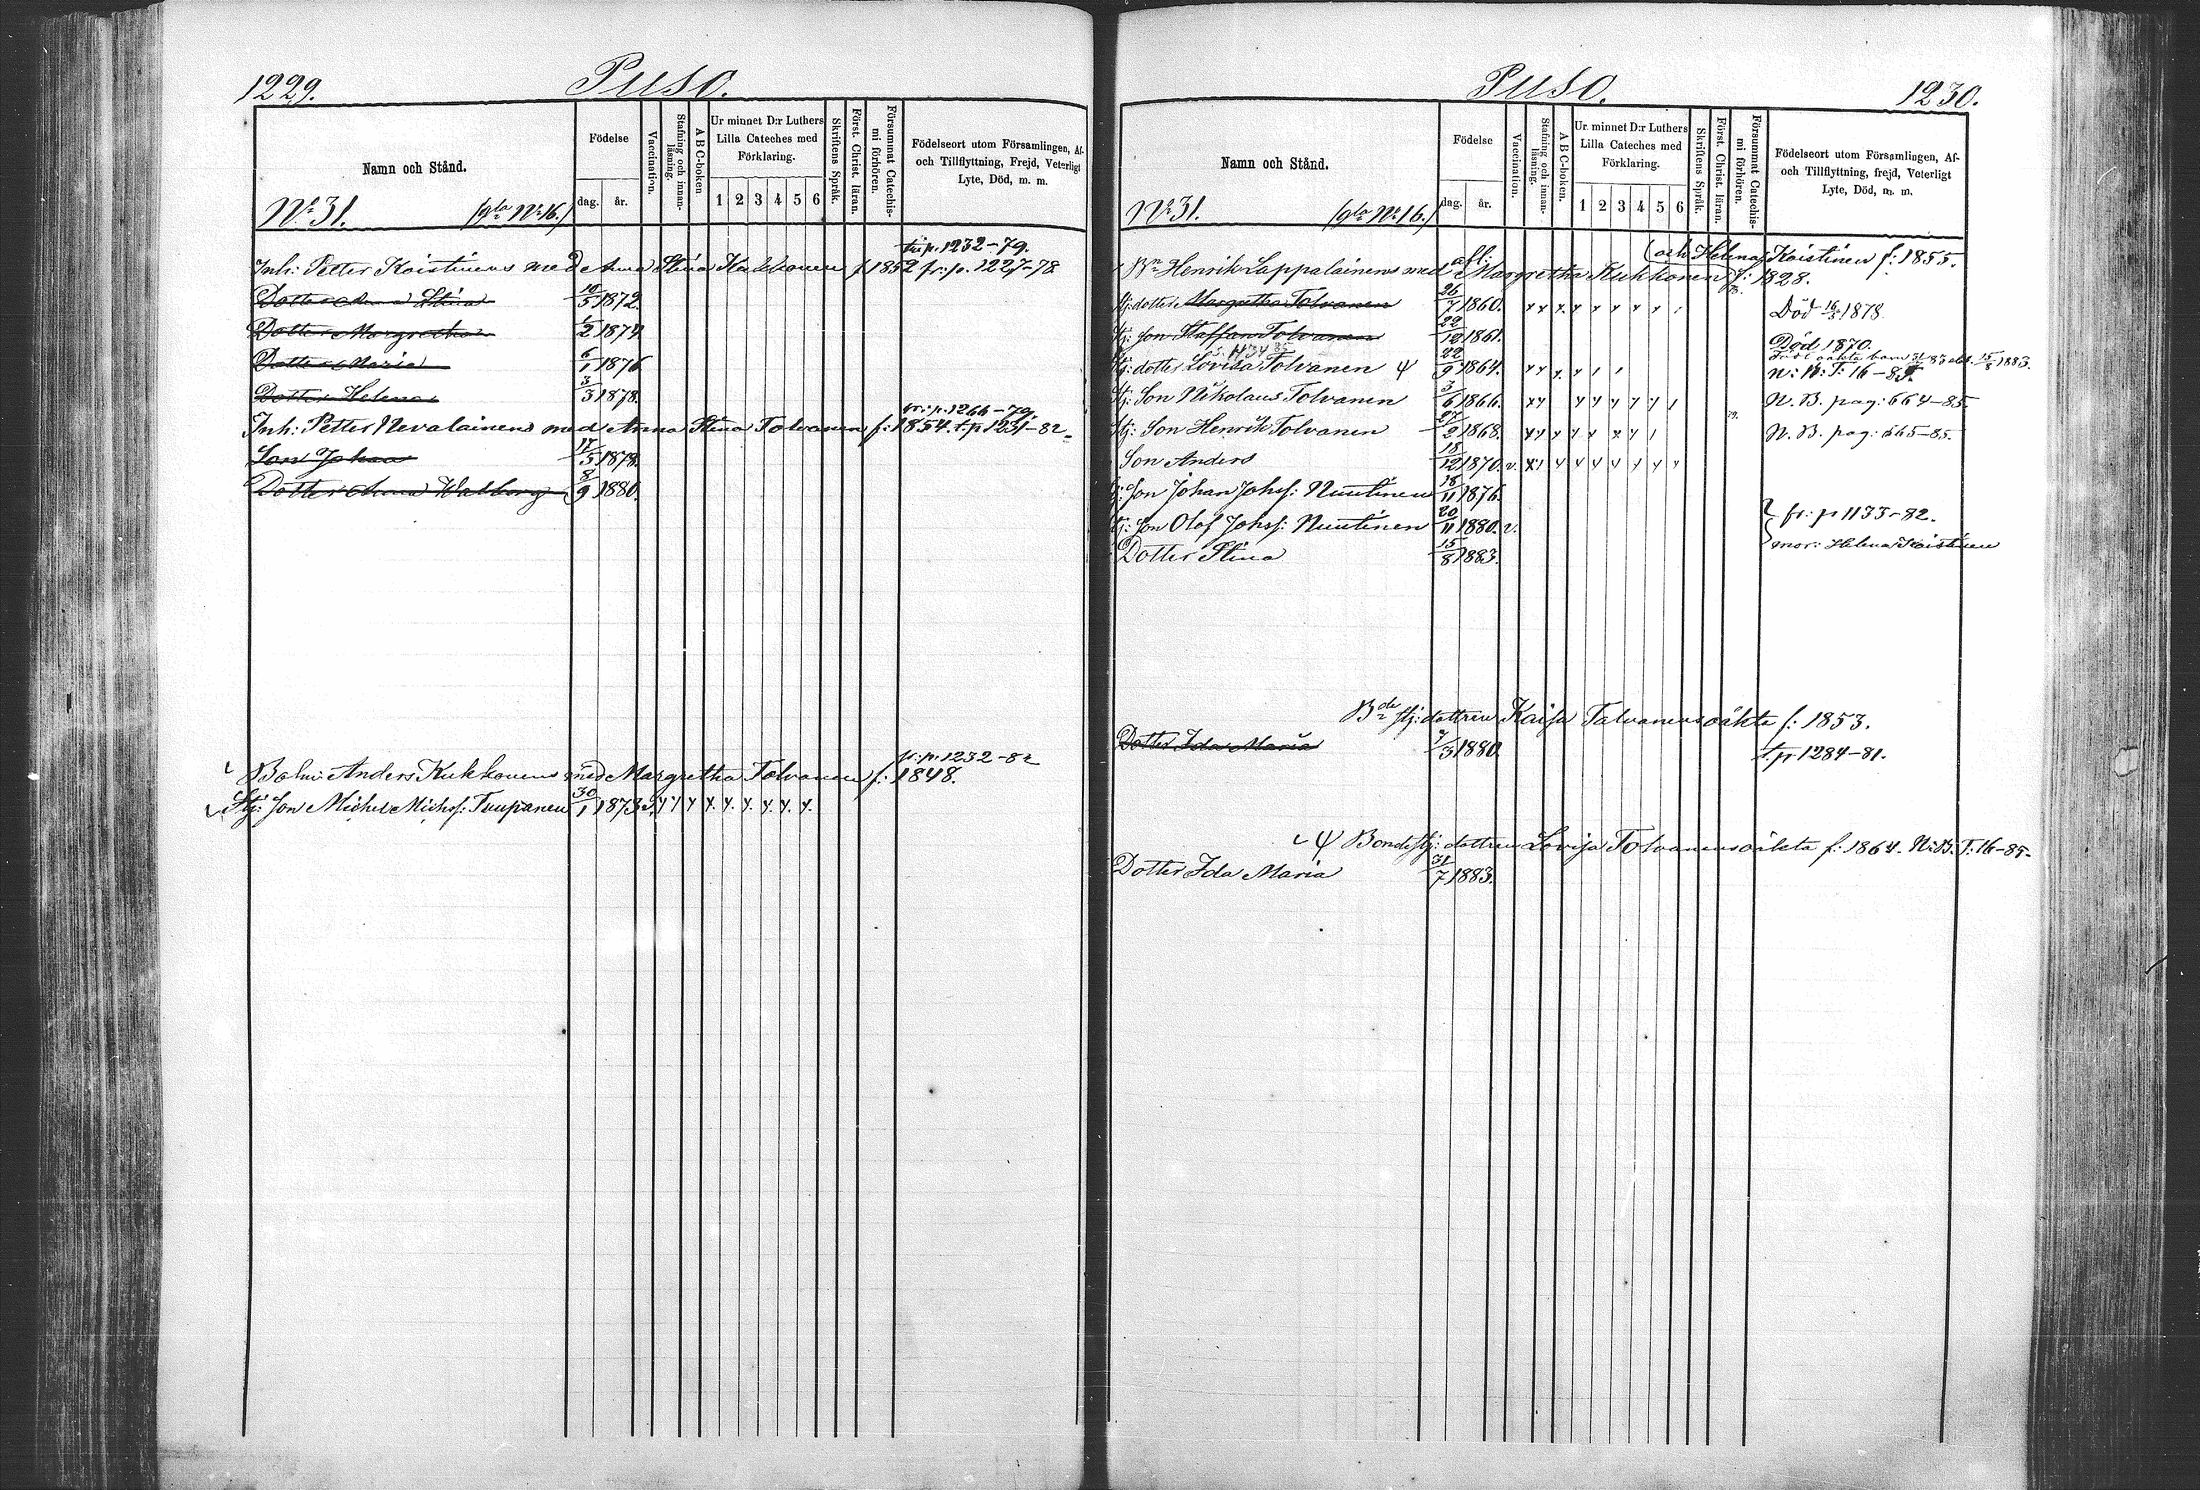 1229.
Puso.
Namn och Stånd.
Födelse
dag.
år.
Vaccination.
Stafning och innan-
läsning.
A B C-boken
Ur minnet D:r Luthers
Lilla Cateches med
Förklaring.
1 2 3 4 5 6
Skriftens Språk.
Först. Christ. läran.
Försummat Catechis-
mi förhören.
Födelseort utom Församlingen, Af-
och Tillflyttning, Frejd, Veterligt
Lyte, Död, m. m.
No 31. (gla No 16.)
t.p. 1232-79.
Inh: Petter Koistinens med Anna Stina Kukkonen f. 1852 fr: p. 1227-78
Dotter Anna Stina 10/5 1872.
Dotter Margretha 1/2 1874
Dotter Maria 6/1 1876
Dotter Helena 3/3 1878.
fr: p. 1266-79.
Inh: Petter Nevalainens med Anna Stina Tolvanen f: 1854. t.p 1231-82
Son Johan 17/5 1878.
Dotter Anna Walborg 8/9 1880.
fr: p. 1232-82
Bolm: Anders Kukkonens med Margretha Tolvanen f: 1848.
Stj: Son Michel Michsf: Tuupanen 30/1 1873
1230.
Puso.
Namn och Stånd.
Födelse
dag.
år.
Vaccination.
Stafning och innan-
läsning.
A B C-boken.
Ur minnet D:r Luthers
Lilla Cateches med
Förklaring.
1 2 3 4 5 6
Skriftens Språk.
Först. Christ. läran.
Försummat Catechis-
mi förhören.
Födelseort utom Församlingen, Af-
och Tillflyttning, frejd, Veterligt
Lyte, Död, m. m.
No 31. (gla No 16.)
(och Helena Koistinen f: 1855.
Bn Henrik Lappalainens med afl: Margretha Kukkonen f: 1828.
Stj: dotter Margretha Tolvanen 26/7 1860. Död 16/3 1878
Stj: Son Staffan Tolvanen 22/12 1861. Död 1870.
Stj: dotter Lovisa Tolvanen ψ 22/9 1864. N: B: T: 16-85.
Stj: Son Nikolaus Tolvanen 3/6 1866. N. B. pag: 664-85.
Stj: Son Henrik Tolvanen 27/2 1868. N. B. pag: 665-85.
Son Anders 18/12 1870. v.
Stj: Son Johan Johsf: Nuutinen 18/11 1876.
Stj: Son Olof Johsf: Nuutinen 20/11 1880. v. fr: p 1133-82.
Dotter Stina 15/8 1883. mor: Helena Koistinen
Bde stj: dottren Kaisa Tolvanens oäkta f: 1853.
Dotter Ida Maria 7/3 1880 t.p. 1284-81.
ψ Bonde stj: dottren Lovisa Tolvanens oäkta f: 1864. N: B: T: 16-85.
Dotter Ida Maria 31/7 1883.